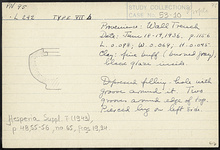 VII 95
L 245 TYPE VII b
STUDY COLLECTION
CASE No. 53-20
Provenience: Wall Trench
Date: Jan. 18-19, 1936. P. 1156
L. 0.093; W. 0.064; H. 0.045
Clay: fine buff (burned gray)
Black glaze inside.
Depressed filling-hole with
groove around it. Two
grooves around edge of top.
Pierced lug on left side.
Hesperia Suppl. 7 (1943),
p. 48, 55-56, no. 65, figs 19, 24